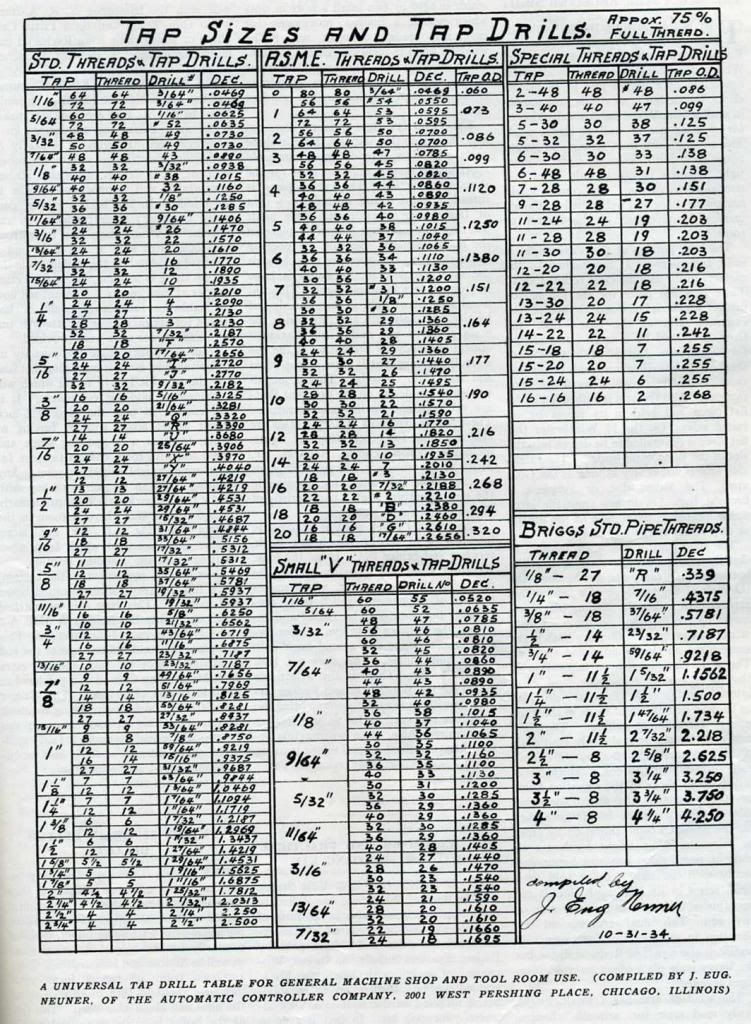 TAP SIZES AND TAP DRILLS.
APPOX. 75%
FULL THREAD.
STD. THREADS & TAP DRILLS.
TAP THREAD DRILL# DEC.
1/16" 64 64 3/64" .0469
72 72 3/64" .0469
5/64 60 60 1/16" .0625
72 72 #52 .0635
3/32" 48 48 49 .0730
50 50 49 .0730
7/64" 48 48 43 .0890
1/8" 32 32 3/32" .0938
40 40 #38 .1015
9/64" 40 40 32 .1160
5/32" 32 32 1/8" .1250
36 36 #30 .1285
11/64" 32 32 9/64" .1406
3/16" 24 24 #26 .1470
32 32 22 .1570
13/64" 24 24 20 .1610
7/32" 24 24 16 .1770
32 32 12 .1890
15/64" 24 24 10 .1935
1/4" 20 20 7 .2010
24 24 4 .2090
27 27 3 .2130
28 28 3 .2130
32 32 7/32" .2187
5/16" 18 18 "F" .2570
20 20 17/64" .2656
24 24 "I" .2720
27 27 "J" .2770
32 32 9/32" .2182
3/8" 16 16 5/16" .3125
20 20 21/64" .3281
24 24 "Q" .3320
27 27 "R" .3390
7/16" 14 14 "U" .3680
20 20 25/64" .3906
24 24 "X" .3970
27 27 "Y" .4040
1/2" 12 12 27/64" .4219
13 13 27/64" .4219
20 20 29/64" .4531
24 24 29/64" .4531
27 27 15/32" .4687
9/16" 12 12 31/64" .4844
18 18 33/64" .5156
27 27 17/32" .5312
5/8" 11 11 17/32" .5312
12 12 35/64" .5469
18 18 37/64" .5781
27 27 19/32" .5937
11/16" 11 11 19/32" .5937
16 16 5/8" .6250
3/4" 10 10 21/32" .6562
12 12 43/64" .6719
16 16 11/16" .6875
27 27 23/32" .7187
13/16" 10 10 23/32" .7187
7/8" 9 9 49/64" .7656
12 12 51/64" .7969
14 14 13/16" .8125
18 18 53/64" .8281
27 27 27/32" .8437
15/16" 9 9 53/64" .8281
1" 8 8 7/8" .8750
12 12 59/64" .9219
16 14 15/16" .9375
27 27 31/32" .9687
1 1/8" 7 7 63/64" .9844
12 12 1 3/64" 1.0469
1 1/4" 7 7 1 7/64" 1.1094
12 12 1 11/64" 1.1719
1 3/8" 6 6 1 7/32" 1.2187
12 12 1 19/64" 1.2969
1 1/2" 6 6 1 11/32" 1.3437
12 12 1 27/64" 1.4219
1 5/8" 5 1/2 5 1/2 1 29/64" 1.4531
1 3/4" 5 5 1 9/16" 1.5625
1 7/8" 5 5 1 11/16" 1.6875
2" 4 1/2 4 1/2 1 25/32" 1.7812
2 1/4" 4 1/2 4 1/2 2 1/32" 2.0313
2 1/2" 4 4 2 1/4" 2.250
2 3/4" 4 4 2 1/2" 2.500
A.S.M.E. THREADS & TAP DRILLS.
TAP THREAD DRILL DEC. TAP O.D.
0 80 80 3/64" .0469 .060
1 56 56 #54 .0550 .073
64 64 53 .0595
72 72 53 .0595
2 56 56 50 .0700 .086
64 64 50 .0700
3 48 48 47 .0785 .099
56 56 45 .0820
4 32 32 45 .0820 .1120
36 36 44 .0860
40 40 43 .0890
48 48 42 .0935
5 36 36 40 .0980 .1250
40 40 38 .1015
44 44 37 .1040
6 32 32 36 .1065 .1380
36 36 34 .1110
40 40 33 .1130
7 30 36 31 .1200 .151
32 32 #31 .1200
36 36 1/8" .1250
8 30 30 #30 .1285 .164
32 32 29 .1360
36 36 29 .1360
40 40 28 .1405
9 24 24 29 .1360 .177
30 30 27 .1440
32 32 26 .1470
10 24 24 25 .1495 .190
28 28 23 .1540
30 30 22 .1570
32 32 21 .1590
12 24 24 16 .1770 .216
28 28 14 .1820
32 32 13 .1850
14 20 20 10 .1935 .242
24 24 7 .2010
16 18 18 #3 .2130 .268
20 20 7/32" .2188
22 22 #2 .2210
18 18 18 "B" .2380 .294
20 20 "D" .2460
20 16 16 "G" .2610 .320
18 18 17/64" .2656
SMALL "V" THREADS & TAP DRILLS
TAP THREAD DRILL No DEC.
1/16" 60 55 .0520
5/64 60 52 .0635
3/32" 48 47 .0785
56 46 .0810
60 46 .0810
7/64" 32 45 .0820
36 44 .0860
40 43 .0890
44 43 .0890
48 42 .0935
1/8" 32 40 .0980
36 38 .1015
40 37 .1040
44 36 .1065
9/64" 30 35 .1100
32 32 .1160
36 35 .1100
40 33 .1130
5/32" 30 31 .1200
32 30 .1285
36 29 .1360
40 29 .1360
11/64" 32 30 .1285
36 29 .1360
40 28 .1405
3/16" 24 27 .1440
28 26 .1470
30 23 .1540
32 23 .1540
13/64" 24 21 .1590
28 20 .1610
32 20 .1610
7/32" 22 19 .1660
24 18 .1695
SPECIAL THREADS & TAP DRILLS
TAP THREAD DRILL TAP O.D.
2-48 48 #48 .086
3-40 40 47 .099
5-30 30 38 .125
5-32 32 37 .125
6-30 30 33 .138
6-48 48 31 .138
7-28 28 30 .151
9-28 28 27 .177
11-24 24 19 .203
11-28 28 19 .203
11-30 30 18 .203
12-20 20 18 .216
12-22 22 18 .216
13-30 20 17 .228
13-24 24 15 .228
14-22 22 11 .242
15-18 18 7 .255
15-20 20 7 .255
15-24 24 6 .255
16-16 16 2 .268
BRIGGS STD. PIPE THREADS.
THREAD DRILL DEC
1/8" - 27 "R" .339
1/4" - 18 7/16" .4375
3/8" - 18 37/64" .5781
1/2" - 14 23/32" .7187
3/4" - 14 59/64" .9218
1" - 11 1/2 1 5/32" 1.1562
1 1/4" - 11 1/2 1 1/2" 1.500
1 1/2" - 11 1/2 1 47/64" 1.734
2" - 11 1/2 2 7/32" 2.218
2 1/2" - 8 2 5/8" 2.625
3" - 8 3 1/4" 3.250
3 1/2" - 8 3 3/4" 3.750
4" - 8 4 1/4" 4.250
compiled by
J. Eug Neuner
10-31-34.
A UNIVERSAL TAP DRILL TABLE FOR GENERAL MACHINE SHOP AND TOOL ROOM USE. (COMPILED BY J. EUG.
NEUNER, OF THE AUTOMATIC CONTROLLER COMPANY, 2001 WEST PERSHING PLACE, CHICAGO, ILLINOIS)